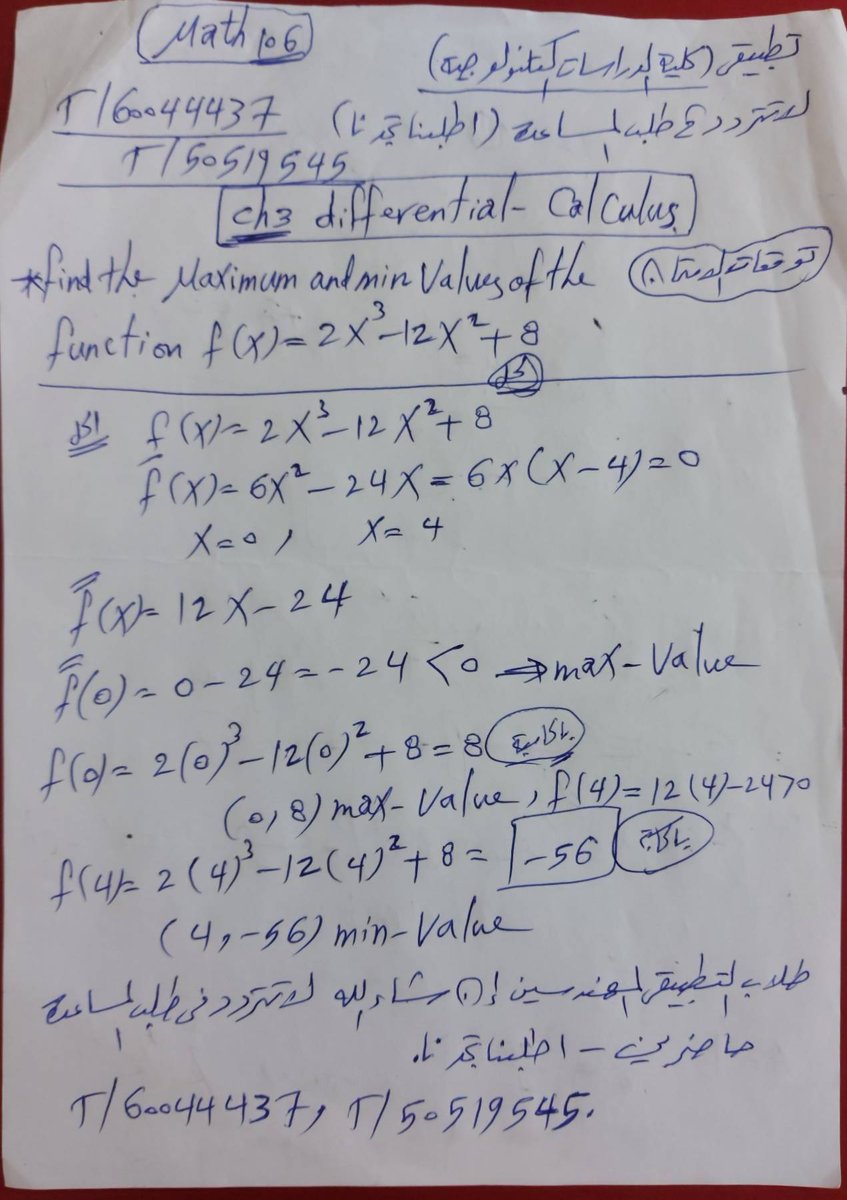 Math 106
تطبيقي (كلية الدراسات التكنولوجية)
T/60044437
لا تتردد في طلب المساعدة (اطلبنا تجدنا)
T/50519545
ch3 differential - Calculus.
*find the Maximum and min Values of the توقعات الامتحان
function f(x) = 2x³-12x²+8
الحل
الحل f(x) = 2x³-12x²+8
f̄(x) = 6x²-24x = 6x(x-4) = 0
x=0, x=4
f̿(x) = 12x-24
f̿(0) = 0-24 = -24 <0 ⇒ max-Value
f(0) = 2(0)³-12(0)²+8 = 8 بالحاسبة
(0,8) max-Value, f̿(4) = 12(4)-24>0
f(4) = 2(4)³-12(4)²+8 = -56
(4,-56) min-Value
طلاب التطبيقي المهندسين إن شاء الله لا تتردد في طلب المساعدة
حاضرين - اطلبنا تجدنا.
T/60044437, T/50519545.